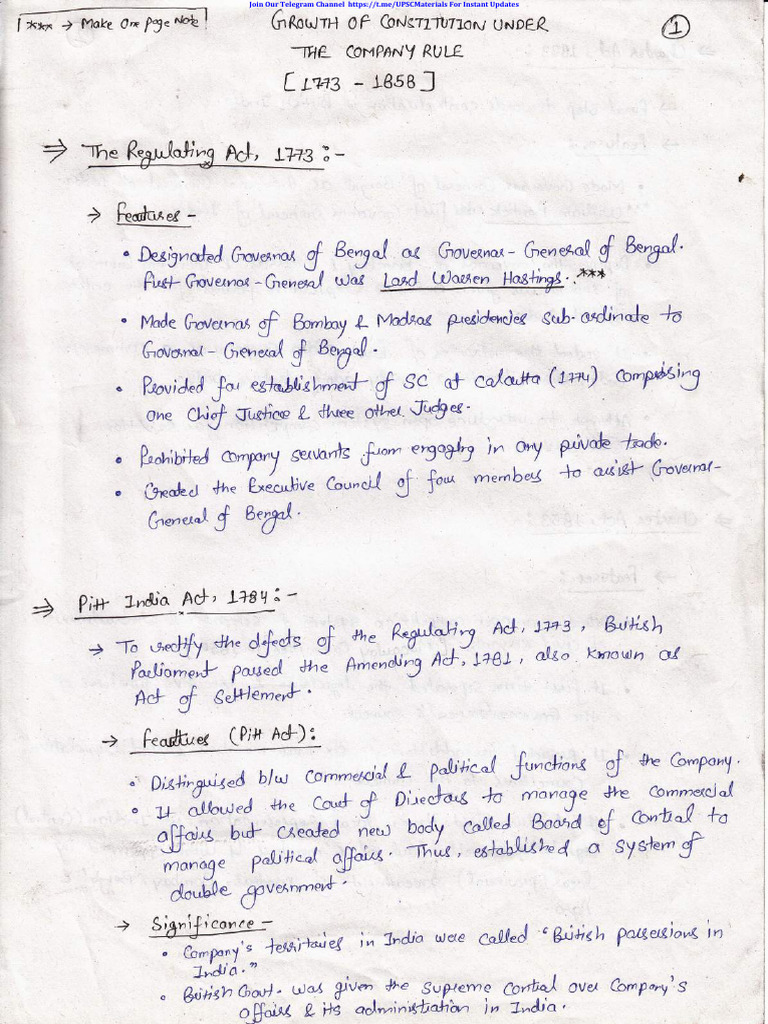 Join Our Telegram Channel https://t.me/UPSCMaterials For Instant Updates
*** → Make One page Note
GROWTH OF CONSTITUTION UNDER
1
THE COMPANY RULE
[1773 - 1858]
⇒ The Regulating Act, 1773 :-
→ Features -
• Designated Governor of Bengal as Governor-General of Bengal.
First Governor-General was Lord Warren Hastings. ***
• Made Governor of Bombay & Madras presidencies sub-ordinate to
Governor-General of Bengal.
• Provided for establishment of SC at Calcutta (1774) comprising
one Chief Justice & three other Judges.
• Prohibited company servants from engaging in any private trade.
• Created the Executive Council of four members to assist Governor-
General of Bengal.
⇒ Pitt India Act, 1784 :-
→ To rectify the defects of the Regulating Act, 1773, British
Parliament passed the Amending Act, 1781, also known as
Act of Settlement.
→ Features (Pitt Act) :
• Distinguised b/w commercial & political functions of the Company.
• It allowed the Court of Directors to manage the commercial
affairs but created new body called Board of Control to
manage political affairs. Thus, established a system of
double government.
→ Significance -
• Company's territories in India were called "British possessions in
India."
• British Govt. was given the supreme control over Company's
affairs & its administration in India.